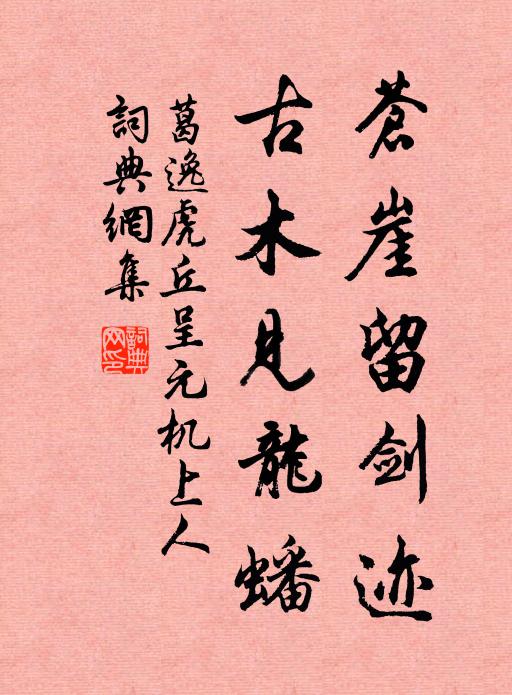 苍崖留剑迹
古木見龍蟠
葛逸虎丘呈元机上人
詞典網集
詞典網印